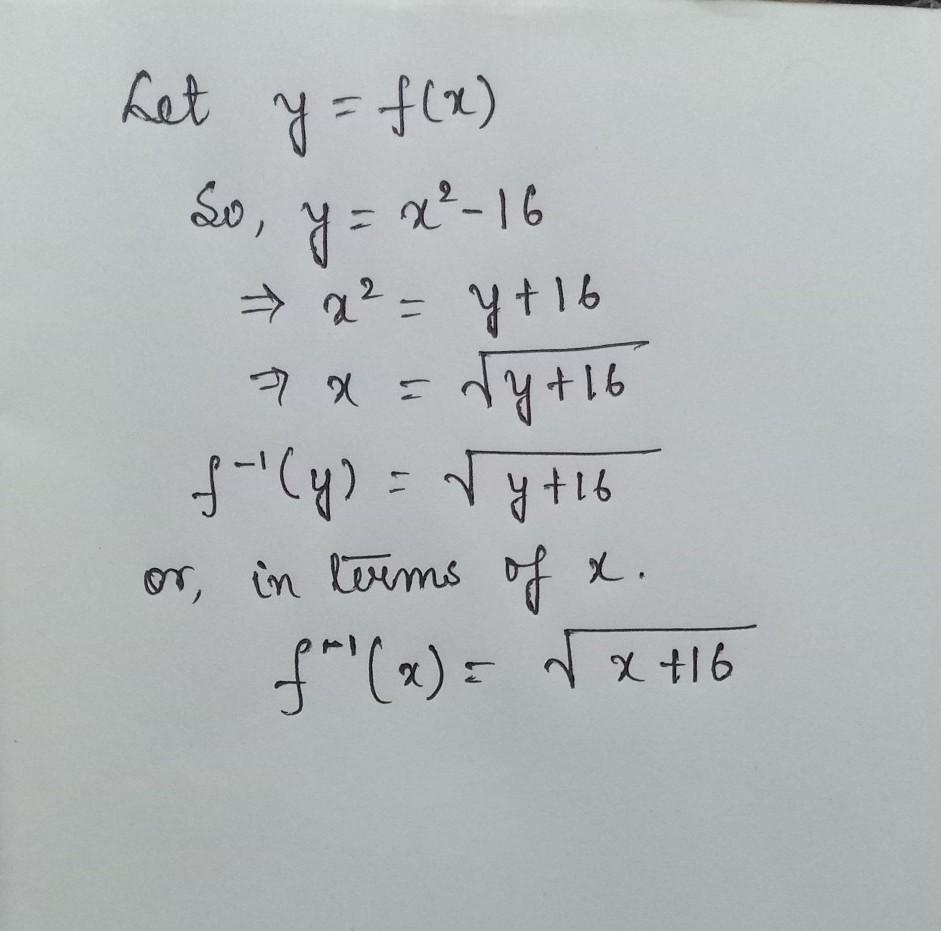 Let y = f(x)
So, y = x²-16
⇒ x² = y+16
⇒ x = √y+16
f⁻¹(y) = √y+16
or, in terms of x.
f⁻¹(x) = √x+16